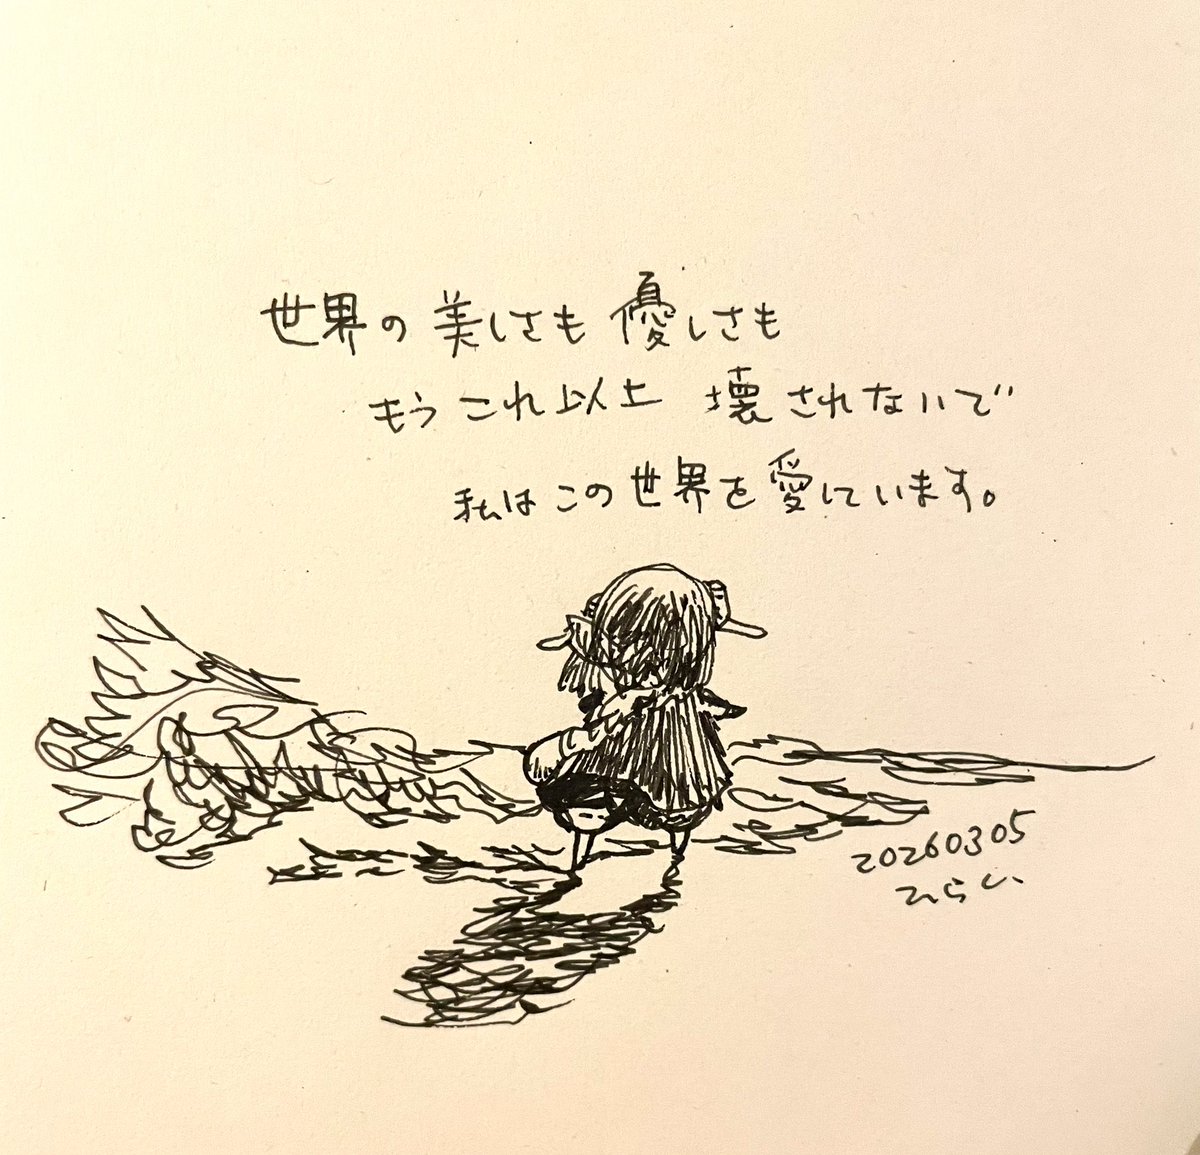 世界の美しさも優しさも
もうこれ以上 壊されないで
私はこの世界を愛しています。
20260305
ひらい